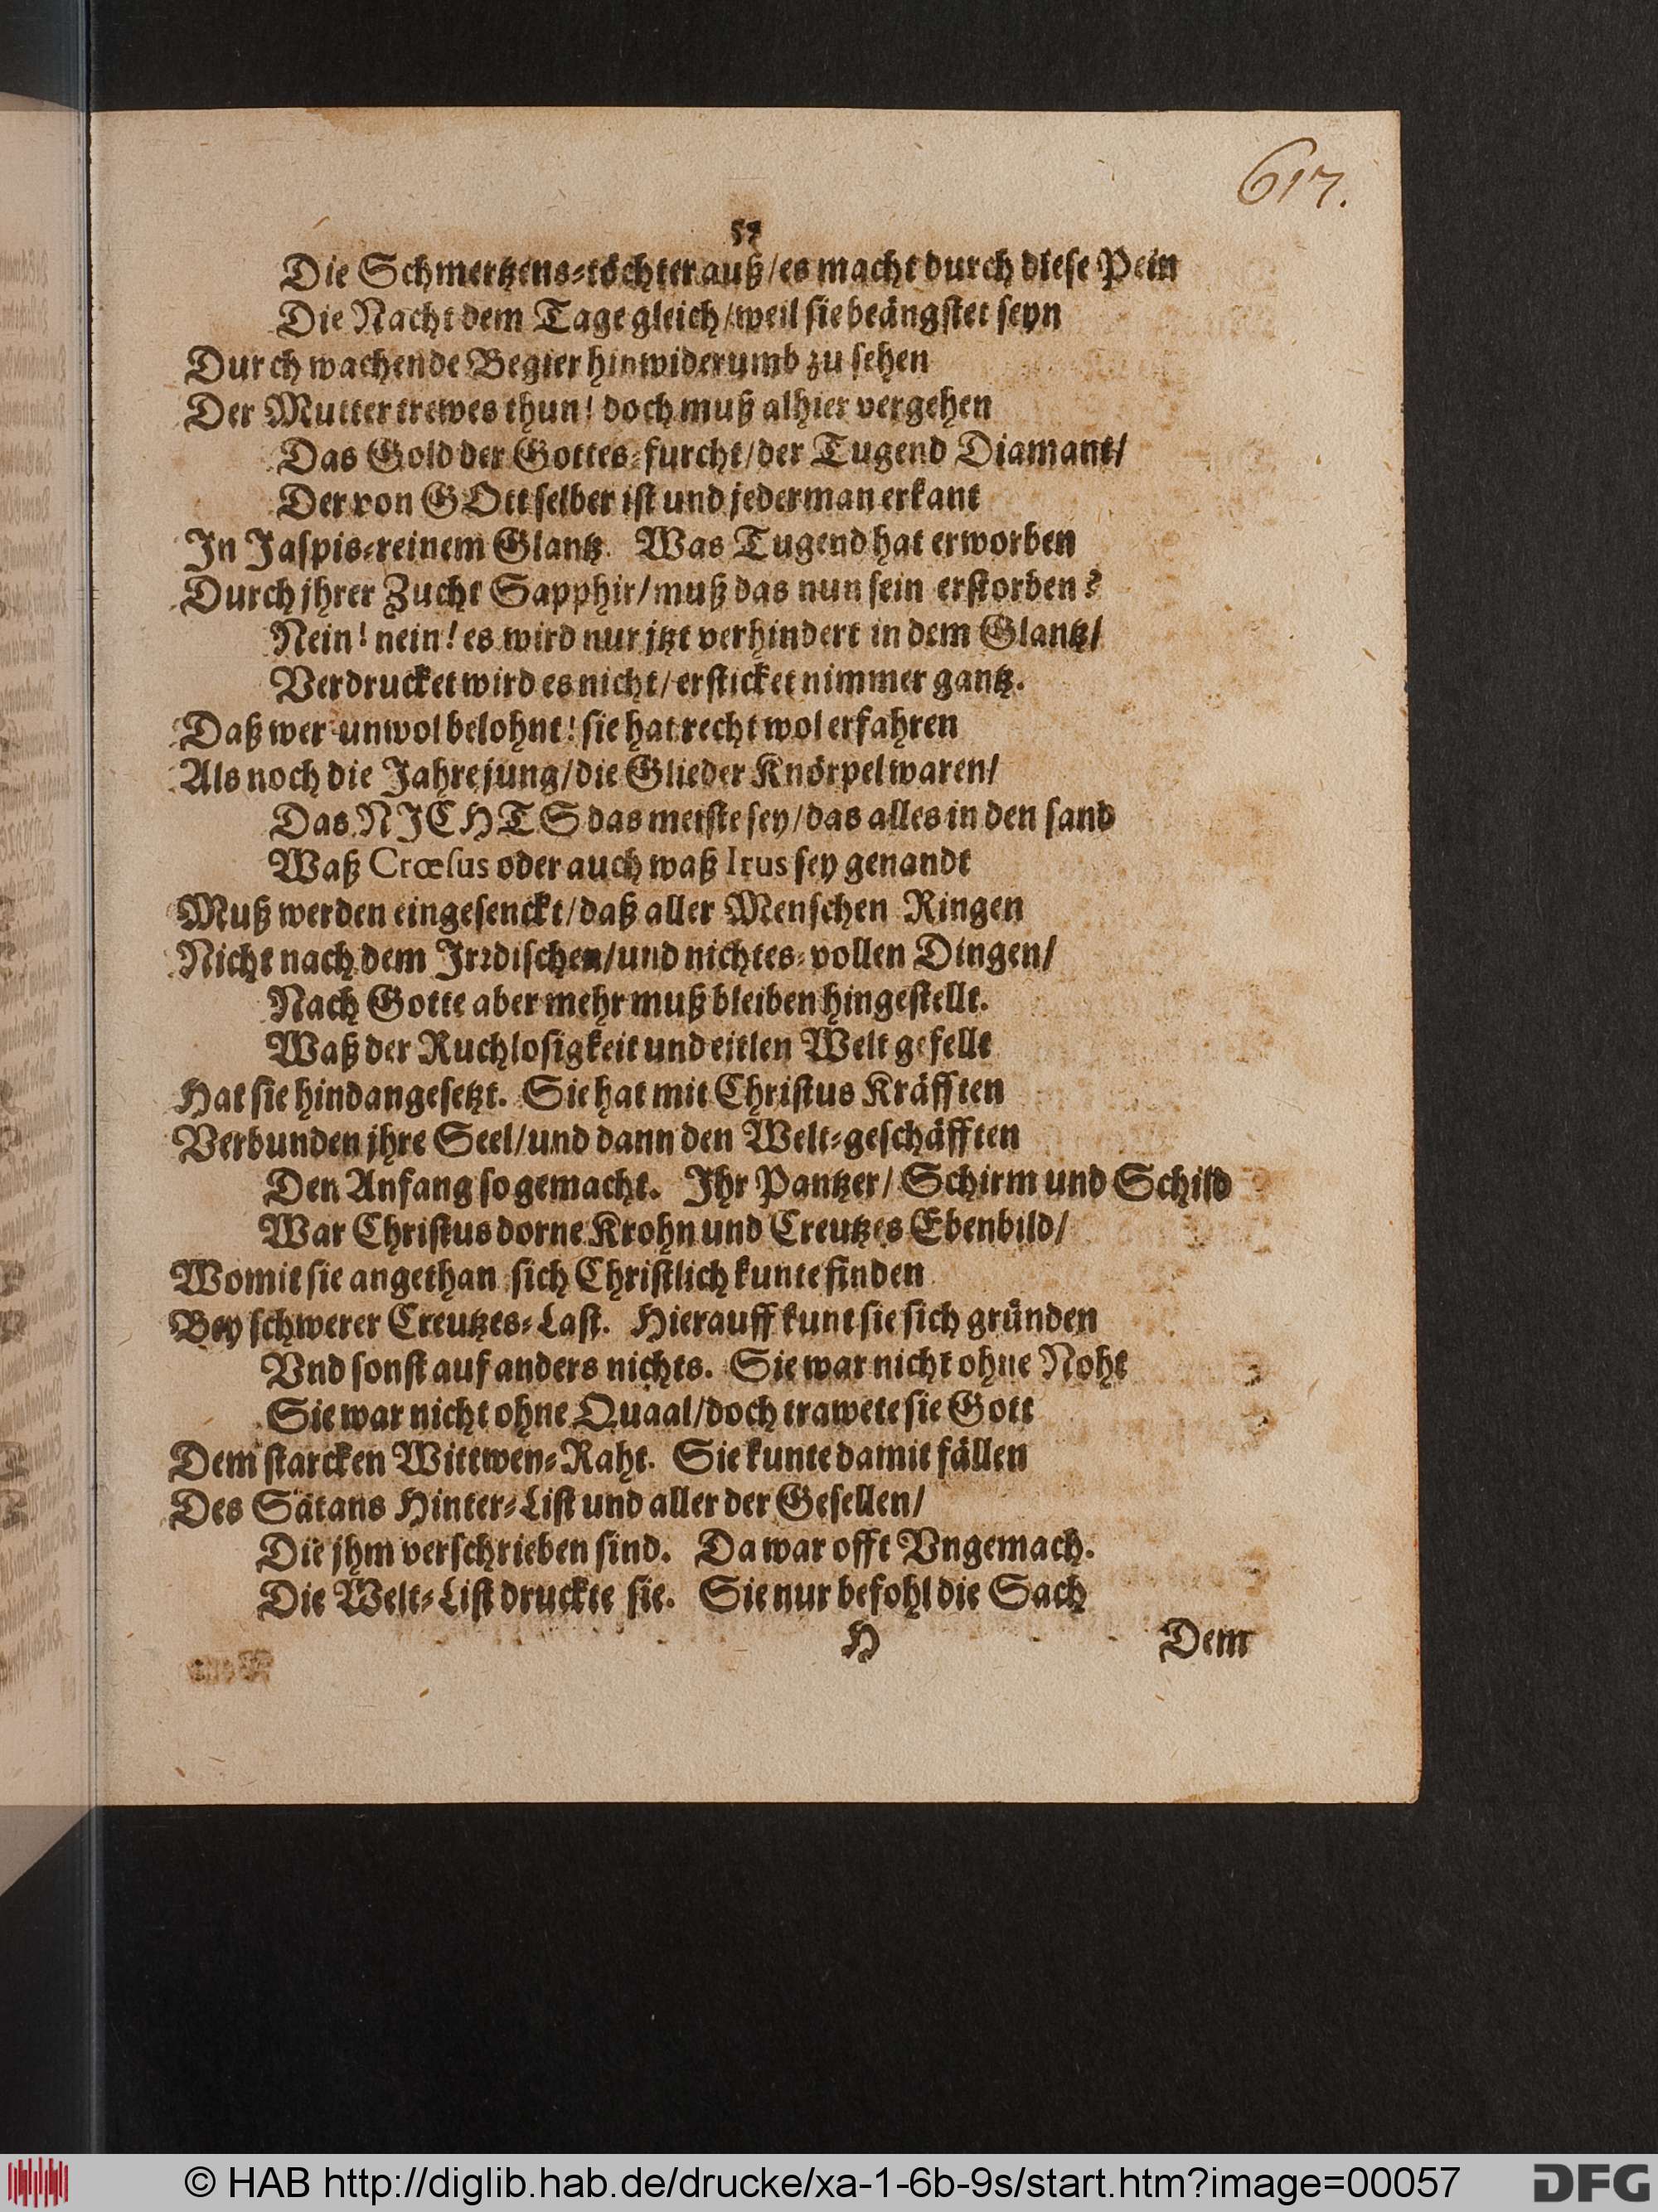 617.
57
Die Schmertzens-töchter auß/es macht durch diese Pein
Die Nacht dem Tage gleich/weil sie beängstet seyn
Durch wachende Begier hinwiderumb zu sehen
Der Mutter trewes thun! doch muß alhier vergehen
Das Gold der Gottes-furcht/der Tugend Diamant/
Der von GOtt selber ist und jederman erkant
In Jaspis-reinem Glantz. Was Tugend hat erworben
Durch jhrer Zucht Sapphir/muß das nun sein erstorben?
Nein! nein! es wird nur jtzt verhindert in dem Glantz/
Verdrucket wird es nicht/ersticket nimmer gantz.
Daß wer unwol belohnt! sie hat recht wol erfahren
Als noch die Jahre jung/die Glieder Knörpel waren/
Das NICHTS das meiste sey/das alles in den sand
Waß Crœsus oder auch waß Irus sey genandt
Muß werden eingesenckt/daß aller Menschen Ringen
Nicht nach dem Irrdischen/und nichtes-vollen Dingen/
Nach Gotte aber mehr muß bleiben hingestellt.
Waß der Ruchlosigkeit und eitlen Welt gefellt
Hat sie hindangesetzt. Sie hat mit Christus Kräfften
Verbunden jhre Seel/und dann den Welt-geschäfften
Den Anfang so gemacht. Ihr Pantzer/Schirm und Schild
War Christus dorne Krohn und Creutzes Ebenbild/
Womit sie angethan sich Christlich kunte finden
Bey schwerer Creutzes-Last. Hierauff kunt sie sich gründen
Vnd sonst auf anders nichts. Sie war nicht ohne Noht
Sie war nicht ohne Quaal/doch trawete sie Gott
Dem starcken Wittwen-Raht. Sie kunte damit fällen
Des Satans Hinter-List und aller der Gesellen/
Die jhm verschrieben sind. Da war offt Vngemach.
Die Welt-List druckte sie. Sie nur befohl die Sach
H Dem
© HAB http://diglib.hab.de/drucke/xa-1-6b-9s/start.htm?image=00057
DFG